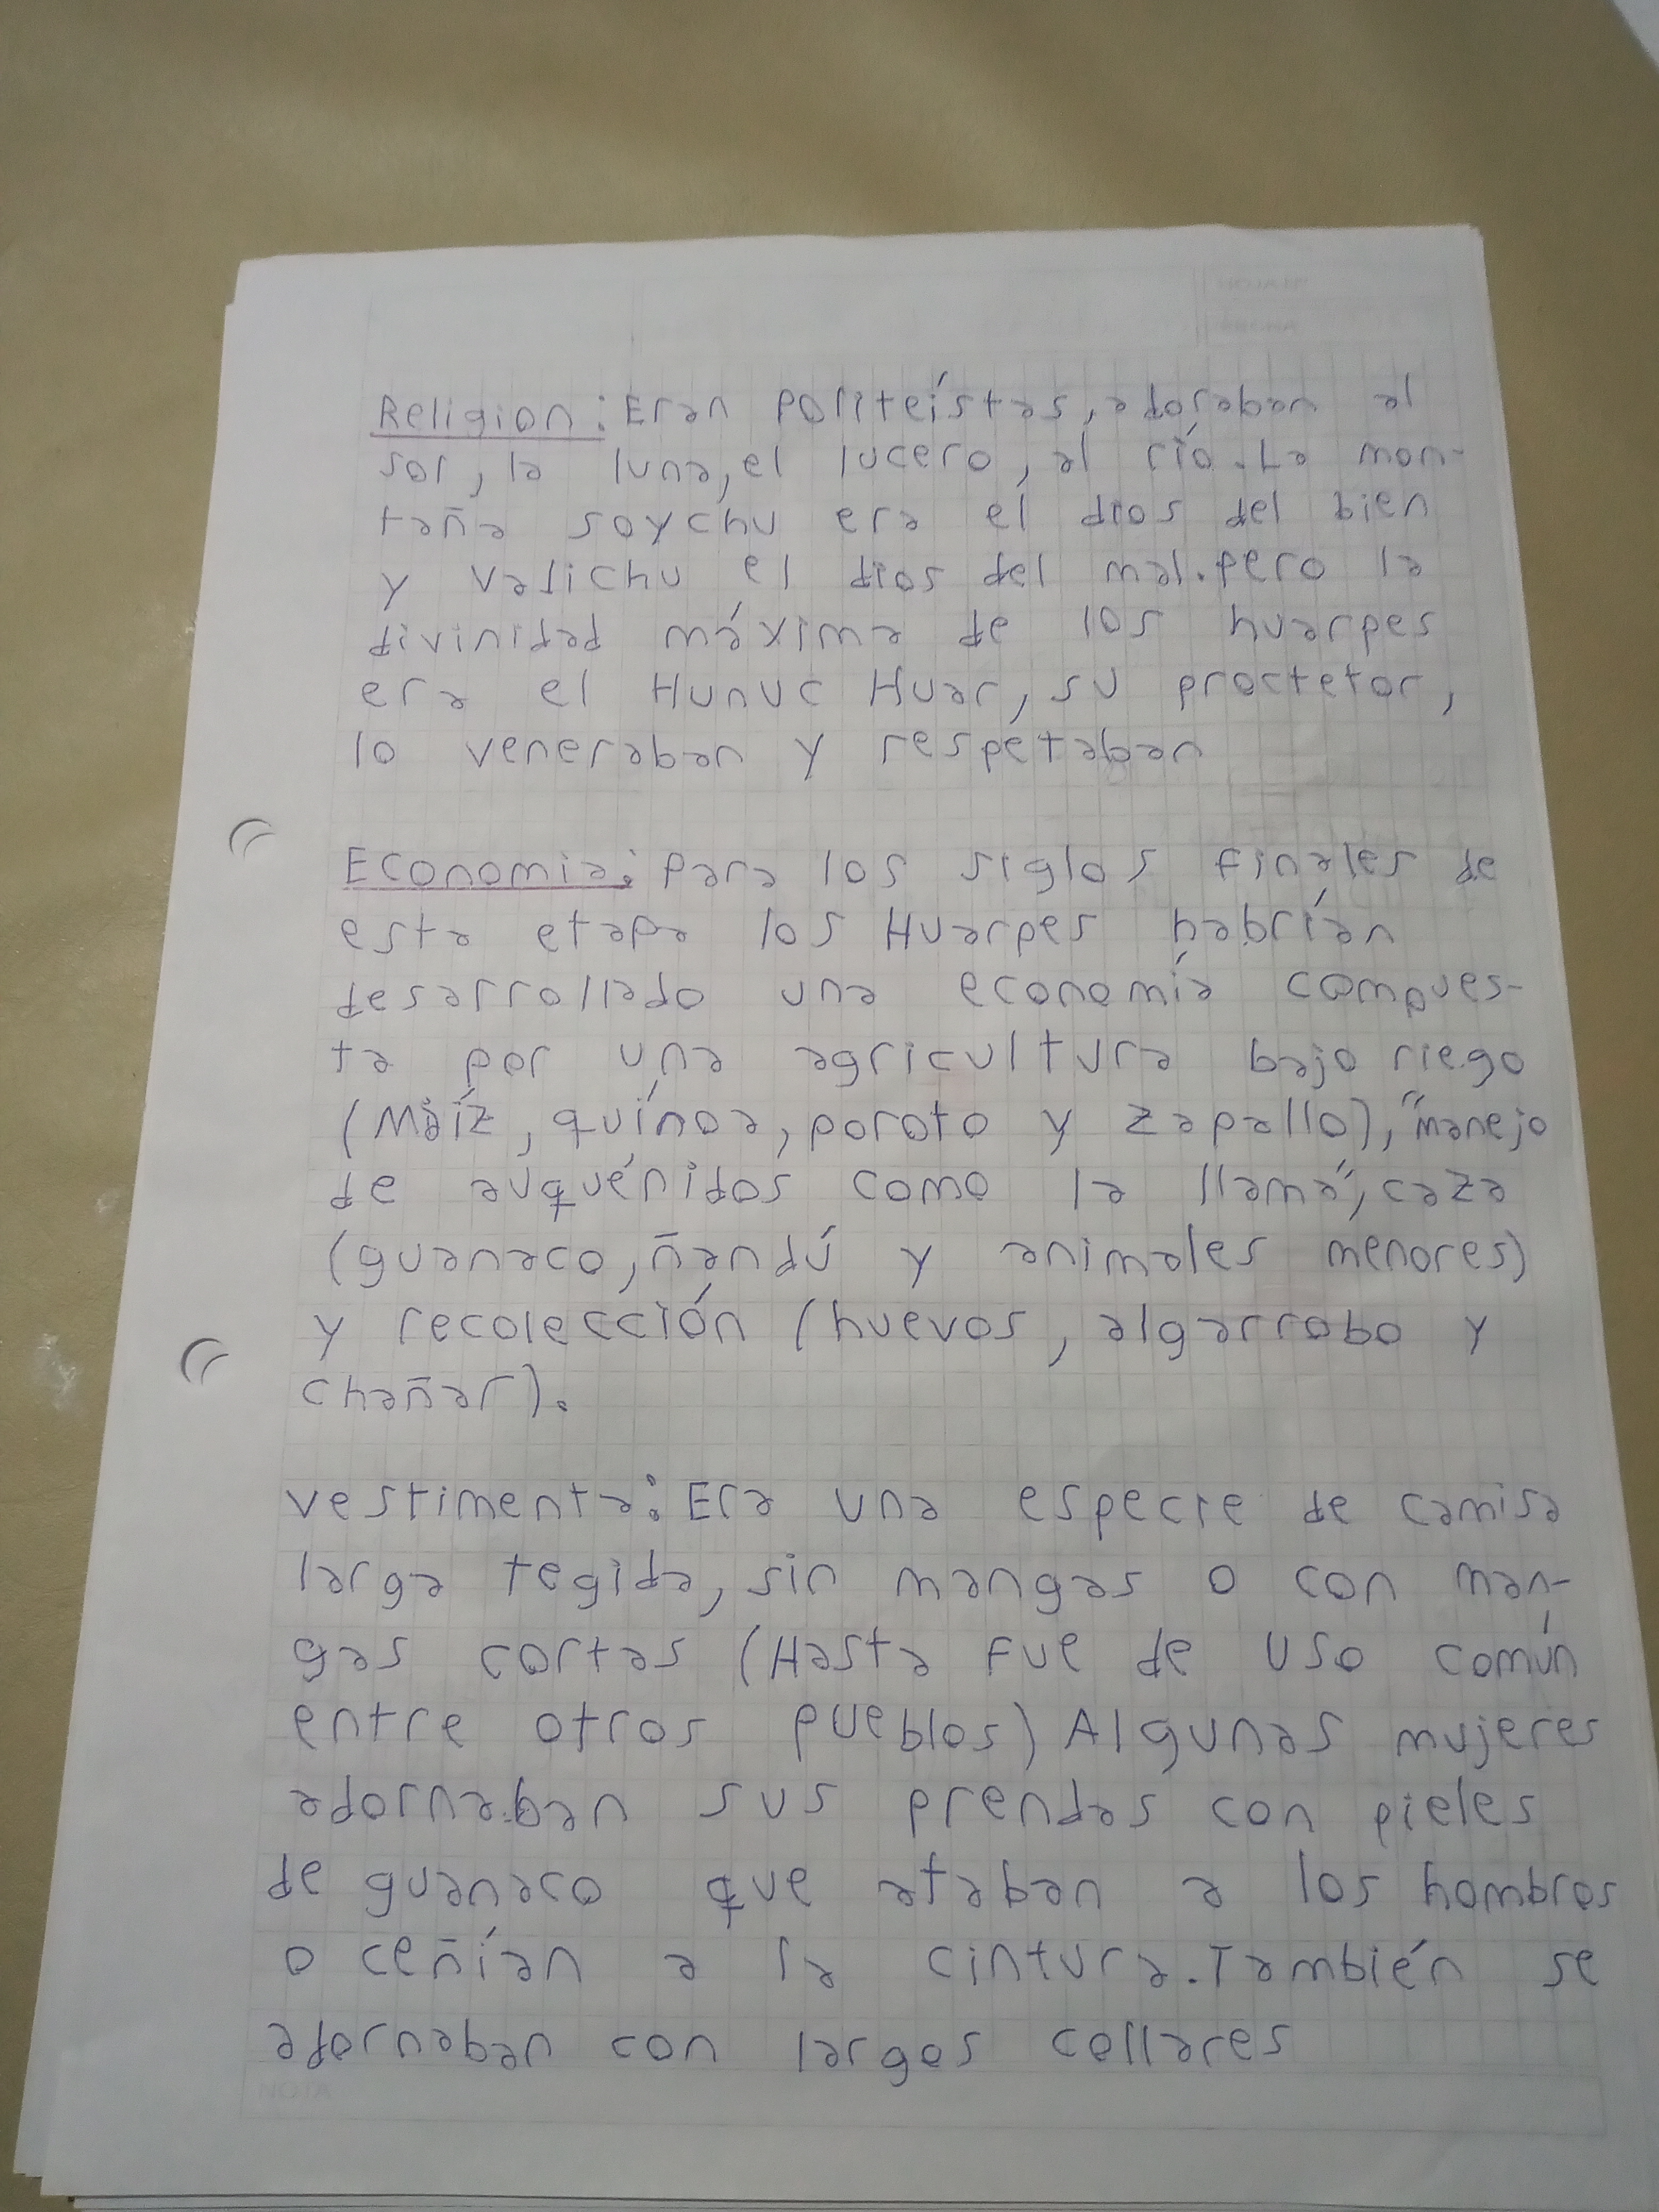 Religion: Eran politeístas, adoraban al
sol, la luna, el lucero, al río. La mon-
taña soychu era el dios del bien
y valichu el dios del mal. pero la
divinidad máxima de los huarpes
era el Hunuc Huar, su proctetor,
lo veneraban y respetaban
Economia: Para los siglos finales de
esta etapa los Huarpes habrían
desarrollado una economía compues-
ta por una agricultura bajo riego
(Maíz, quínoa, poroto y zapallo), "manejo
de auquénidos como la llama", caza
(guanaco, ñandú y animales menores)
y recolección (huevos, algarrobo y
chañar).
vestimenta: Era una especie de camisa
larga tegida, sin mangas o con man-
gas cortas (Hasta fue de uso común
entre otros pueblos) Algunas mujeres
adornaban sus prendas con pieles
de guanaco que ataban a los hombros
o ceñían a la cintura. También se
adornaban con largos collares
NOTA